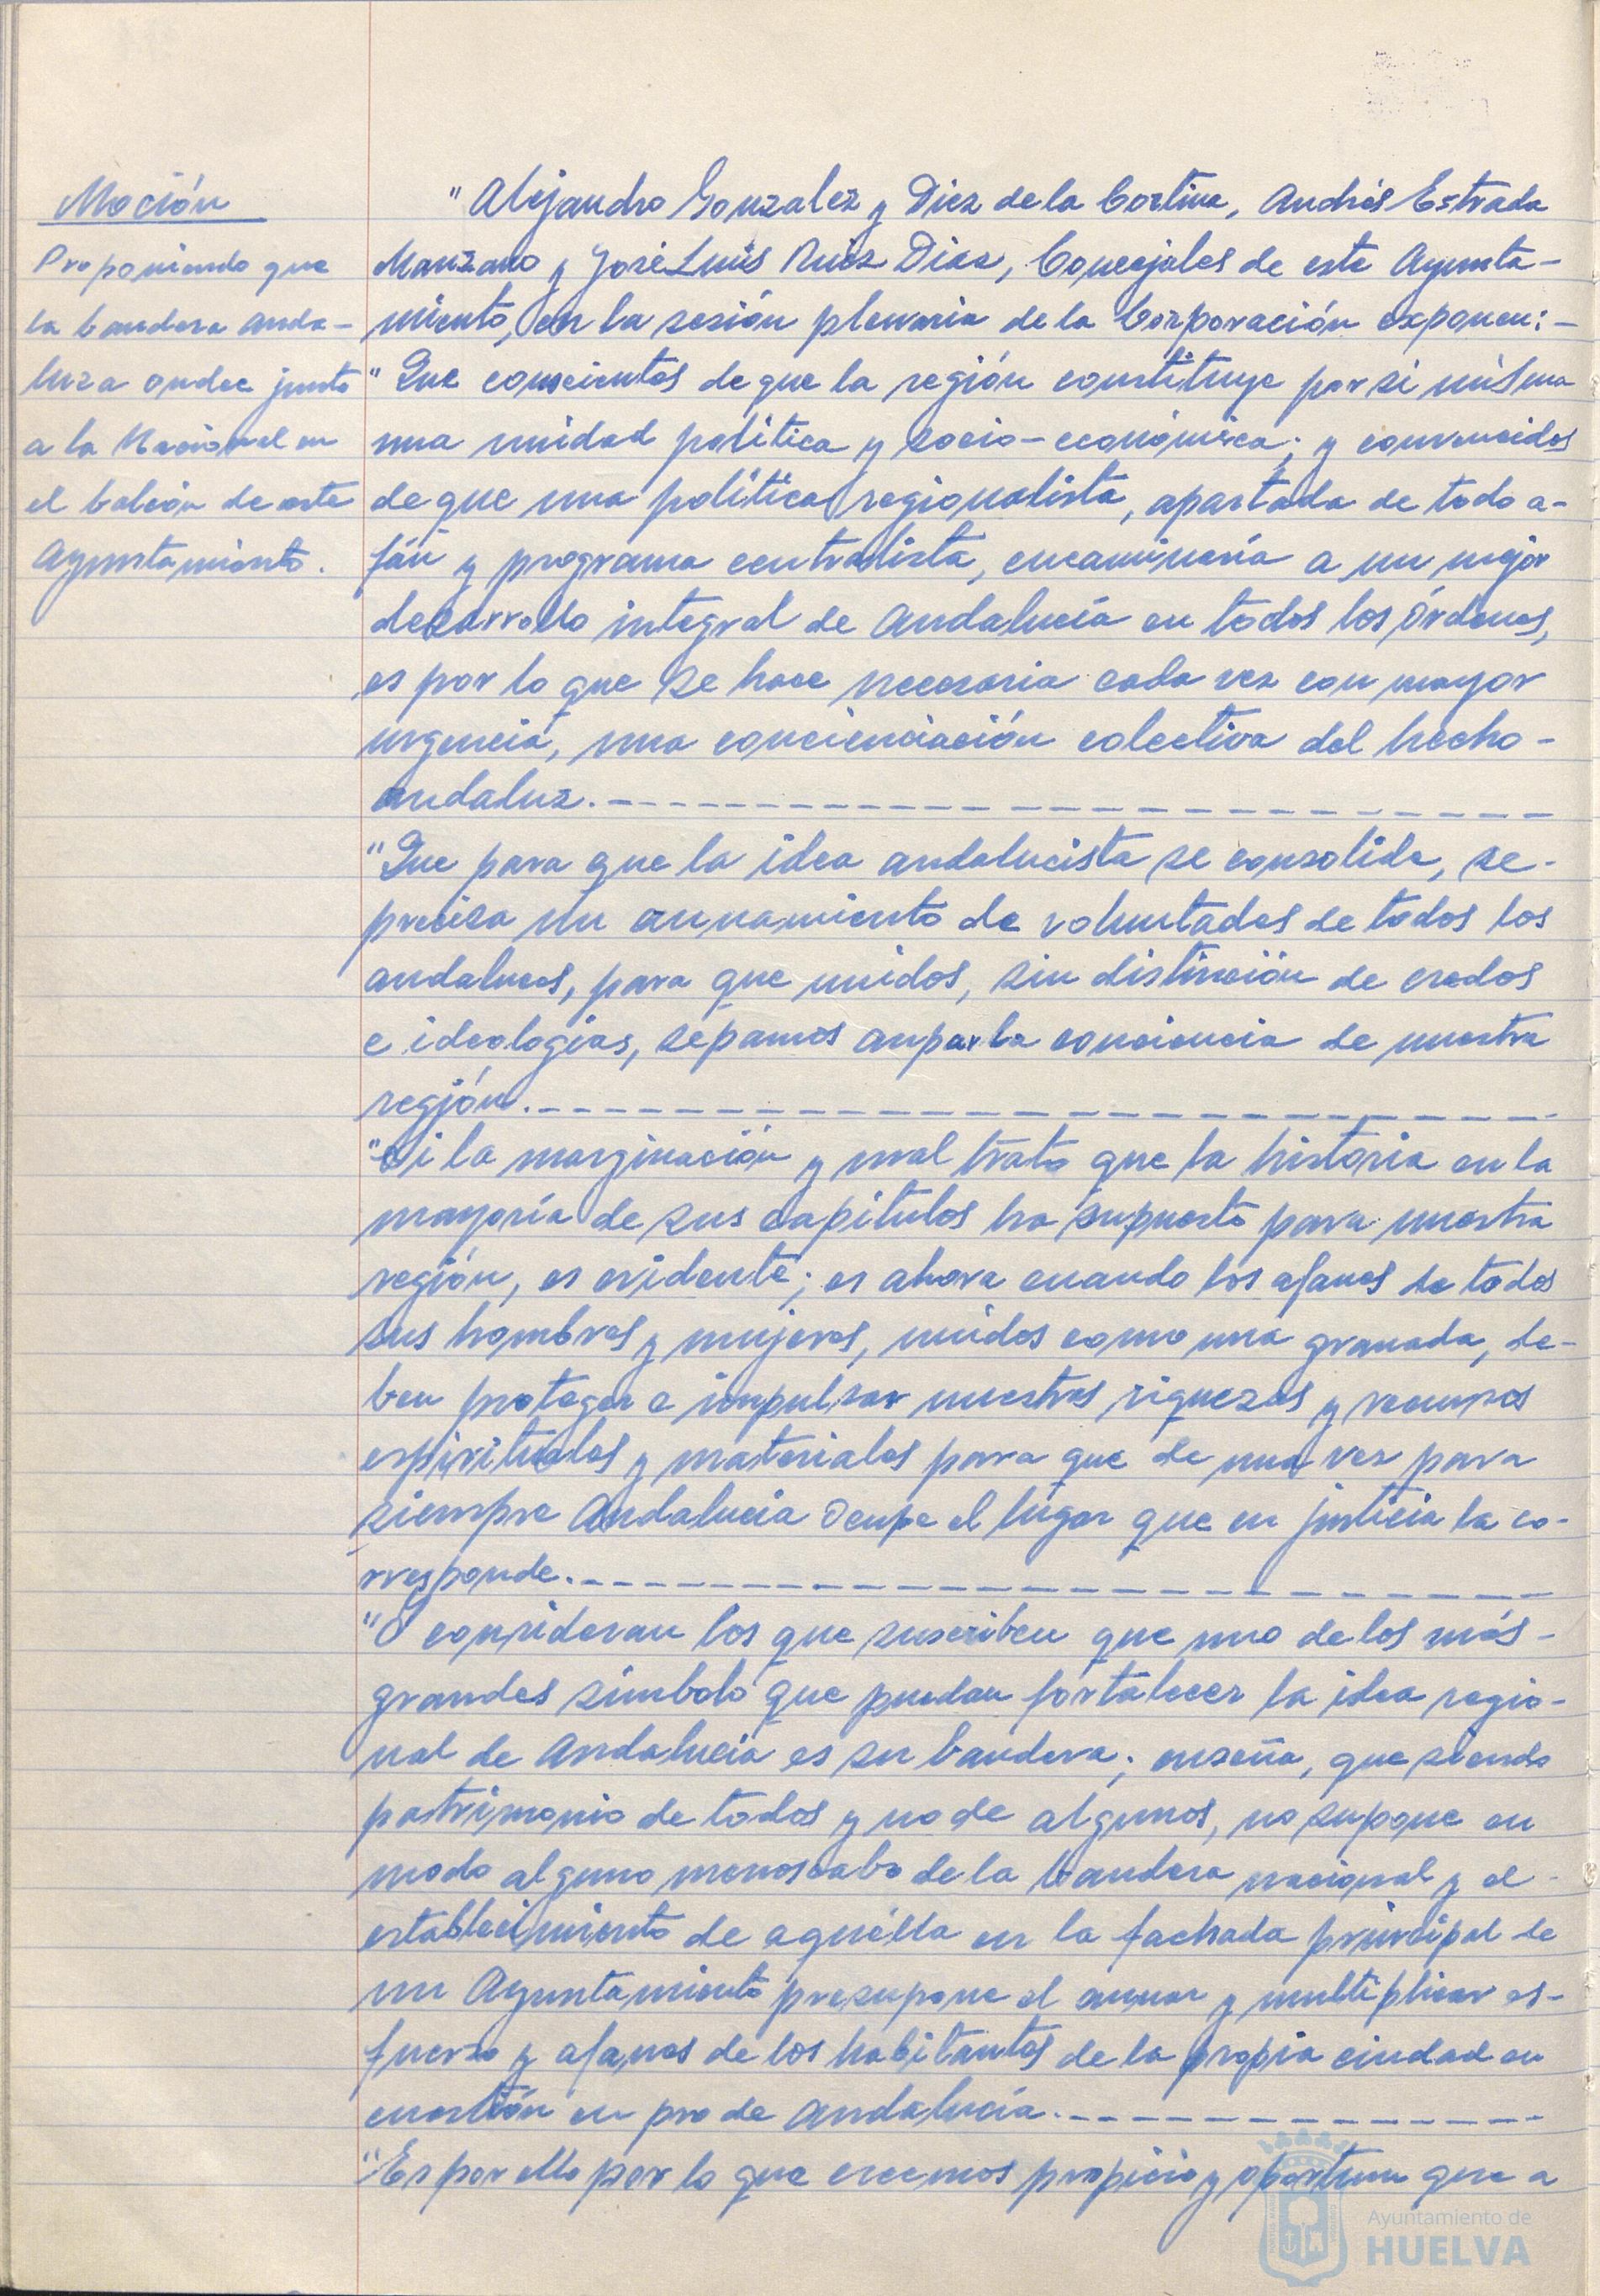 Moción
Proponiendo que
la bandera anda-
luza ondee junto
a la Nacional en
el balcón de este
Ayuntamiento.
"Alejandro Gonzalez y Diez de la Cortina, Andrés Estrada
Manzano y José Luis Ruiz Diaz, Concejales de este Ayunta-
miento, en la sesión plenaria de la Corporación exponen:-
"Que conscientes de que la región constituye por si misma
una unidad política y socio-económica; y convencidos
de que una política regionalista, apartada de todo a-
fán y programa centralista, encaminaría a un mejor
desarrollo integral de Andalucía en todos los órdenes,
es por lo que se hace necesaria cada vez con mayor
urgencia, una concienciación colectiva del hecho-
andaluz.-
"Que para que la idea andalucista se consolide, se-
precisa un aunamiento de voluntades de todos los
andaluces, para que unidos, sin distinción de credos
e ideologías, sepamos aupar la conciencia de nuestra
región.-
"Si la marginación y mal trato que la historia en la
mayoría de sus capítulos ha supuesto para nuestra
región, es evidente; es ahora cuando los afanes de todos
sus hombres y mujeres, unidos como una granada, de-
ben proteger e impulsar nuestras riquezas y recursos
espirituales y materiales para que de una vez para
siempre Andalucia ocupe el lugar que en justicia la co-
rresponde.-
"O consideran los que suscriben que uno de los más-
grandes símbolo que puedan fortalecer la idea regio-
nal de Andalucia es su bandera; enseña, que siendo
patrimonio de todos y no de algunos, no supone en
modo alguno menoscabo de la bandera nacional y el-
establecimiento de aquélla en la fachada principal de
un Ayuntamiento presupone el aunar y multiplicar es-
fuerzo y afanes de los habitantes de la propia ciudad en
cuestión en pro de Andalucía.-
"Es por ello por lo que creemos propicio y oportuno que a
Ayuntamiento de
HUELVA